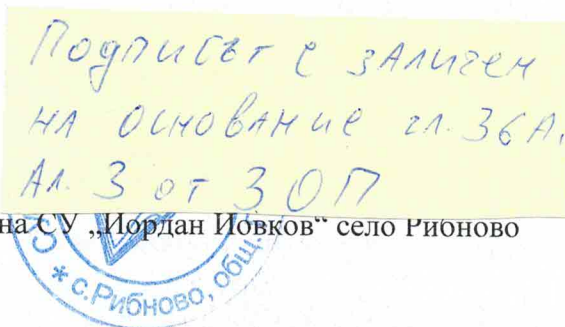 Подписът е заличен
на основание гл. 36А,
Ал. 3 от ЗОП
на СУ „Йордан Йовков“ село Рибново
* с. Рибново, общ.